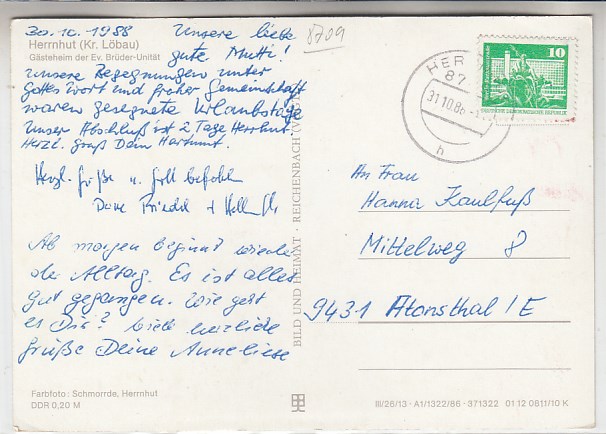 30.10.1988 Unsere liebe
8709
Herrnhut (Kr. Löbau)
gute Mutti!
Gästeheim der Ev. Brüder-Unität
Unsere Begegnungen unter
Gottes Wort und froher Gemeinschaft
waren gesegnete Urlaubstage
Unser Abschluß ist 2 Tage Herrnhut.
Herzl. Gruß Dein Hartmut.
Herzl. Grüße u. Gott befohlen
Deine Friedel +
Ab morgen beginnt wieder
der Alltag. Es ist alles
gut gegangen. Wie geht
es Dir? Viele herzliche
Grüße Deine Anneliese
Farbfoto: Schmorrde, Herrnhut
DDR 0,20 M
BILD UND HEIMAT · REICHENBACH
HER
87
31.10.88
h
10
DEUTSCHE DEMOKRATISCHE REPUBLIK
An Frau
Hanna Kaulfuß
Mittelweg 8
9431 Atonsthal / E
III/26/13 · A1/1322/86 · 371322 01 12 0811/10 K